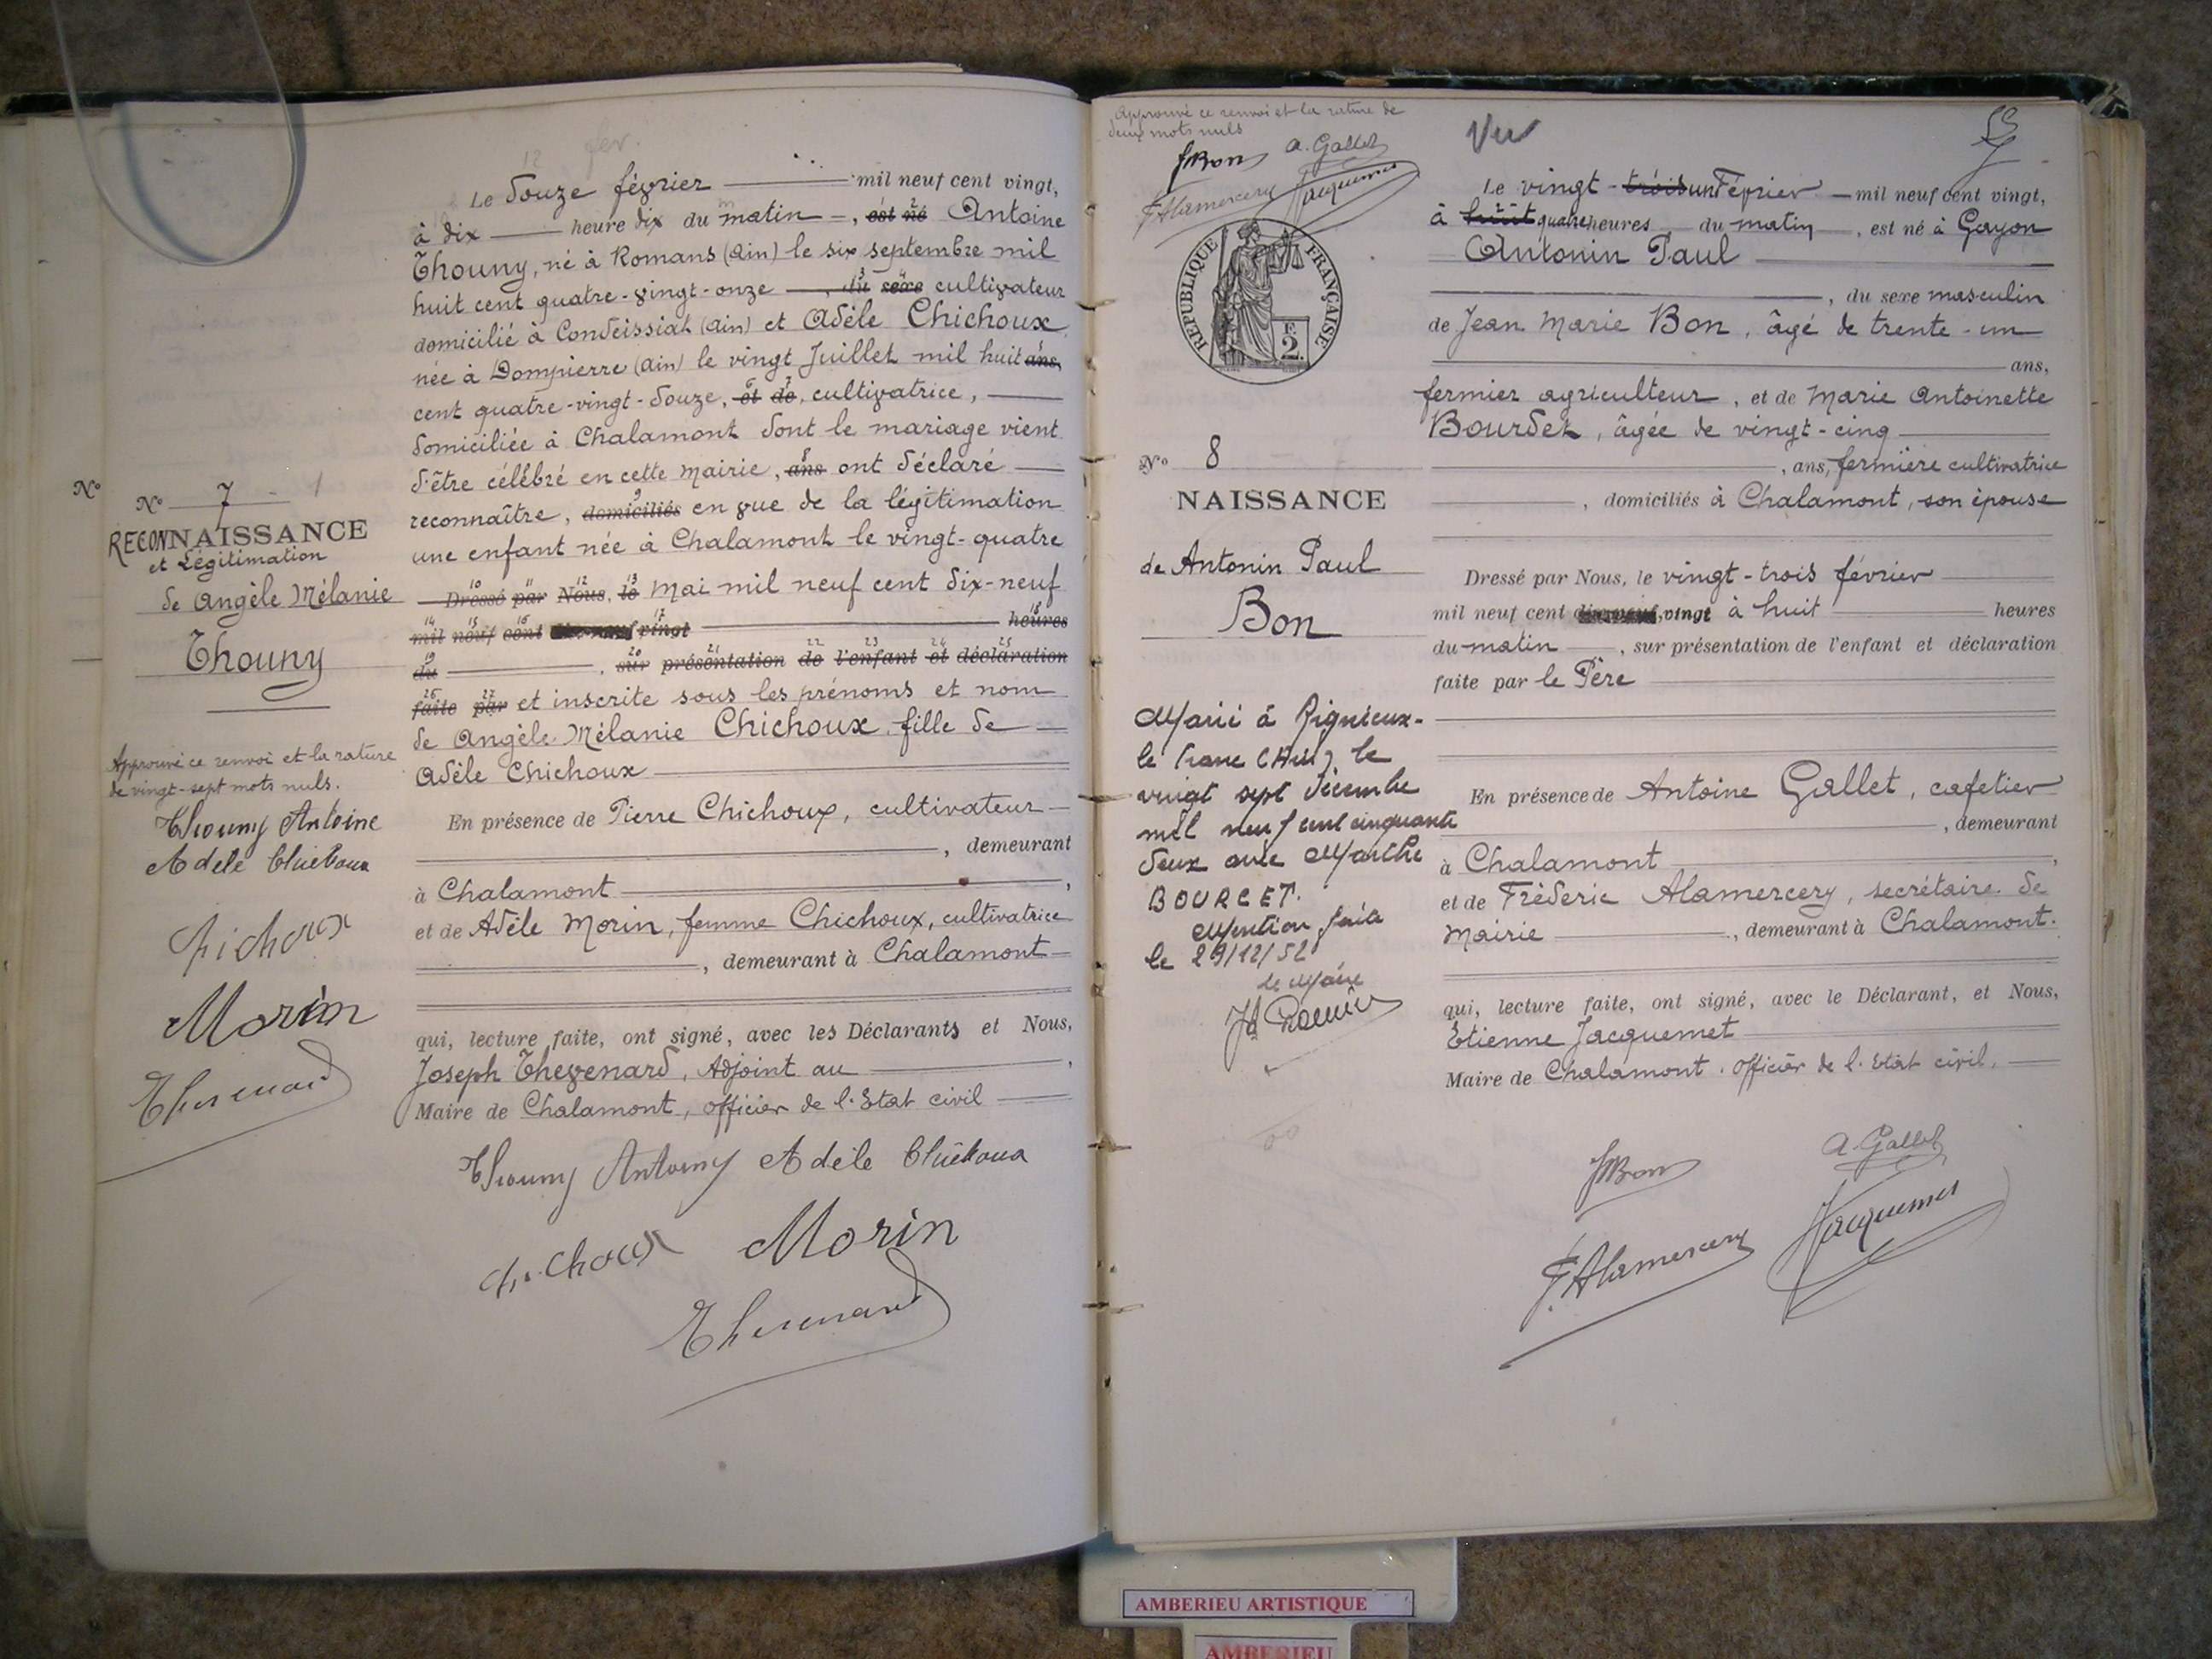 12 fev.
Le douze février mil neuf cent vingt,
à dix heure dix du matin, est né Antoine
Thouny, né à Romans (Ain) le six septembre mil
huit cent quatre-vingt-onze, du sexe cultivateur
domicilié à Condeissiat (Ain) et Adèle Chichoux
née à Dompierre (Ain) le vingt Juillet mil huit ans,
cent quatre-vingt-douze, et de, cultivatrice,
domiciliée à Chalamont dont le mariage vient
d'être célébré en cette Mairie, ans ont déclaré
reconnaître, domiciliés en vue de la légitimation
une enfant née à Chalamont le vingt-quatre
Dressé par Nous, le Mai mil neuf cent dix-neuf
mil neuf cent vingt heures
du, sur présentation de l'enfant et déclaration
faite par et inscrite sous les prénoms et nom
de Angèle Mélanie Chichoux, fille de
Adèle Chichoux
En présence de Pierre Chichoux, cultivateur
, demeurant
à Chalamont,
et de Adèle Morin, femme Chichoux, cultivatrice
, demeurant à Chalamont
qui, lecture faite, ont signé, avec les Déclarants et Nous,
Joseph Thevenard, Adjoint au,
Maire de Chalamont, officier de l'Etat civil
Thouny Antoine Adele Chichoux
Chichoux Morin
Thevenard
N°
N° 7
RECONNAISSANCE
et Légitimation
de Angèle Mélanie
Thouny
Approuvé ce renvoi et la rature
de vingt-sept mots nuls.
Thouny Antoine
Adele Chichoux
Chichoux
Morin
Thevenard
Approuvé ce renvoi et la rature de
deux mots nuls
JBon A. Gallet
F. Alamercery Jacquemet
REPUBLIQUE FRANÇAISE
2 F.
N° 8
NAISSANCE
de Antonin Paul
Bon
Marié à Rignieux-
le Franc (Ain) le
vingt sept décembre
mil neuf cent cinquante
deux avec Marthe
BOURCET.
Mention faite
le 29/12/52
le Maire
Vu
Le vingt-trois un Février mil neuf cent vingt,
à huit quatre heures du matin, est né à Gayon
Antonin Paul
, du sexe masculin
de Jean Marie Bon, âgé de trente-un
ans,
fermier agriculteur, et de Marie Antoinette
Bourdet, âgée de vingt-cinq
, ans, fermière cultivatrice
, domiciliés à Chalamont, son épouse
Dressé par Nous, le vingt-trois février
mil neuf cent vingt à huit heures
du matin, sur présentation de l'enfant et déclaration
faite par le Père
En présence de Antoine Gallet, cafetier
, demeurant
à Chalamont,
et de Fréderic Alamercery, secrétaire de
Mairie, demeurant à Chalamont.
qui, lecture faite, ont signé, avec le Déclarant, et Nous,
Etienne Jacquemet
Maire de Chalamont. Officier de l'Etat civil.
JBon A. Gallet
F. Alamercery Jacquemet
AMBERIEU ARTISTIQUE
AMBERIEU